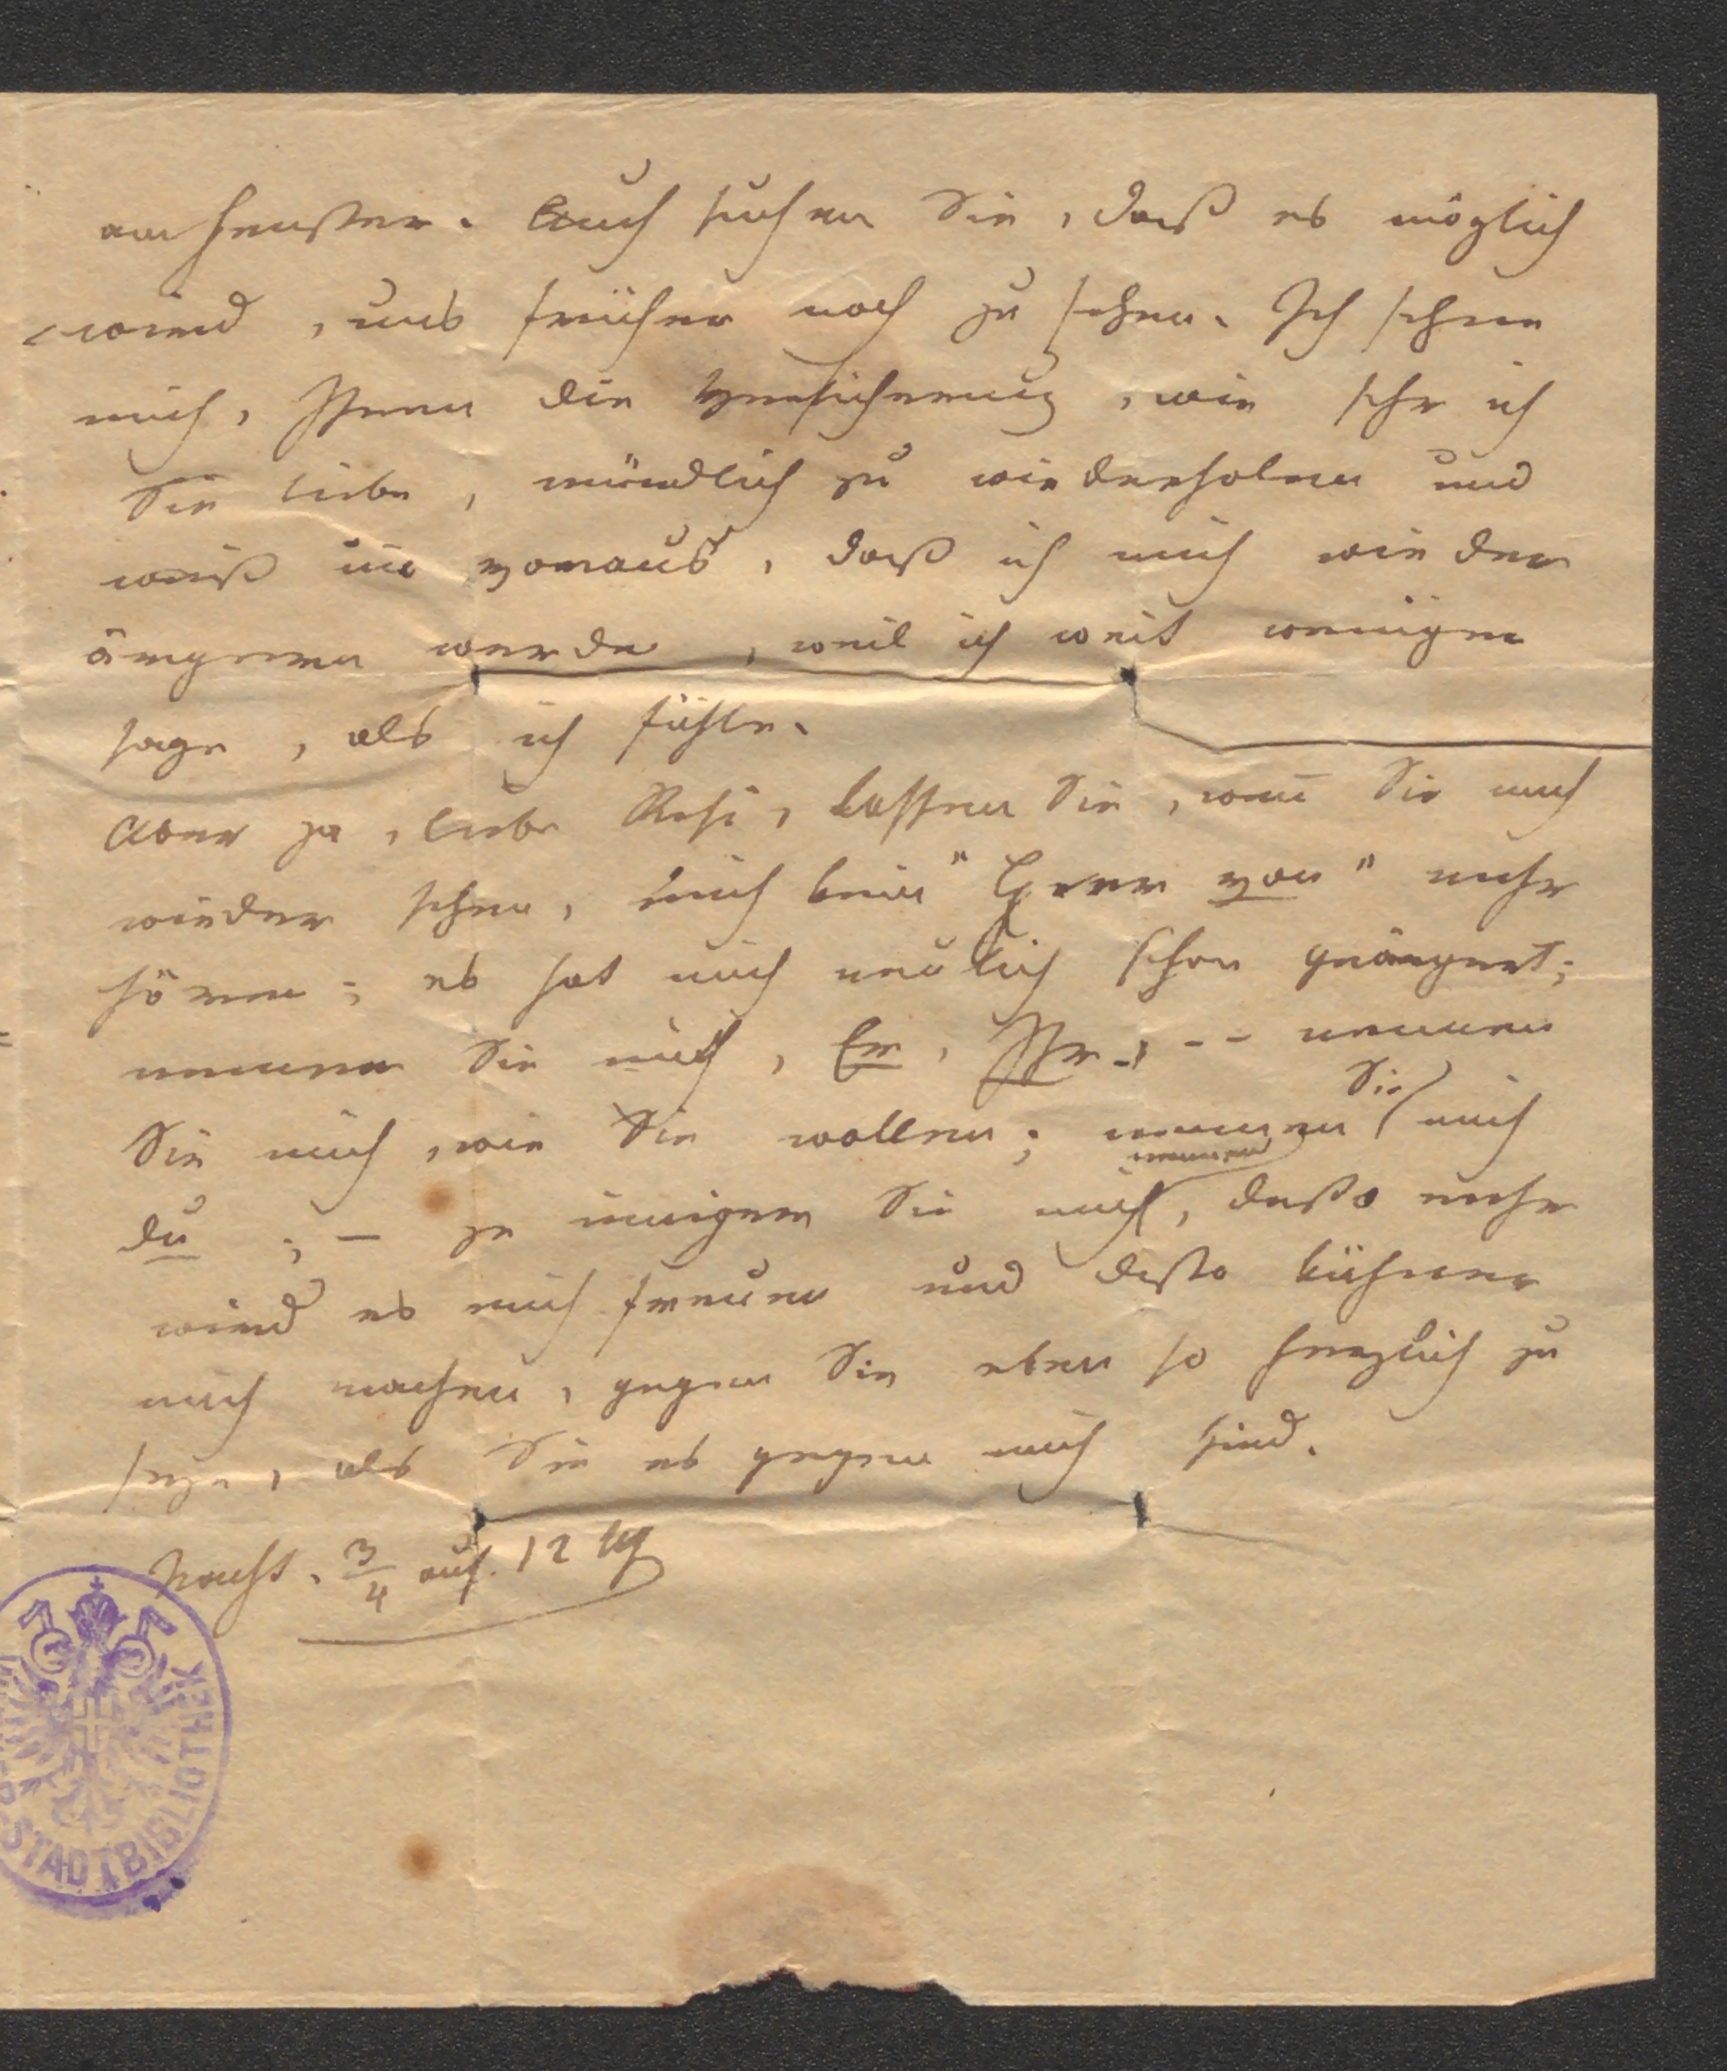 am Fenster. Auch suchen Sie, daß es möglich
wird, uns früher noch zu sehen. Ich sehne
mich, Ihnen die Versicherung, wie sehr ich
Sie liebe, mündlich zu wiederholen und
weiß im voraus, daß ich mich wieder
ärgern werde, weil ich weit weniger
sage, als ich fühle.
Aber ja, liebe Resi, lassen Sie, wen̅ Sie mich
wieder sehen, mich kein "Herr von" mehr
hören; es hat mich neulich schon geärgert;
nennen Sie mich, Er, Ihr, -- nennen
Sie
Sie mich, wie Sie wollen; nennen mich
nennen
du; – je inniger Sie mich, desto mehr
wird es mich freuen und desto kühner
mich machen, gegen Sie eben so herzlich zu
seyn, als Sie es gegen mich sind.
Nacht. 3/4 auf 12 Uhr
STADTBIBLIOTHEK